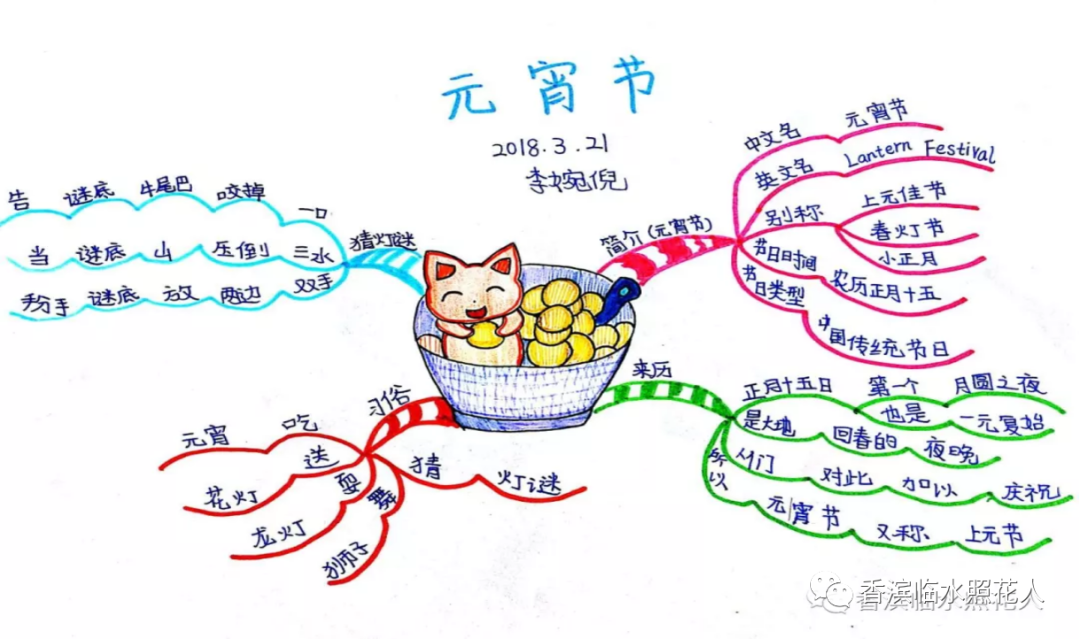 元宵节
2018.3.21
李婉倪
简介(元宵节)
中文名 元宵节
英文名 Lantern Festival
别称
上元佳节
春灯节
小正月
节日时间 农历正月十五
节日类型 中国传统节日
来历
正月十五日 第一个 月圆之夜
也是 一元复始
是大地 回春的 夜晚
所以
人们 对此 加以 庆祝
元宵节 又称 上元节
习俗
吃 元宵
送 花灯
耍 龙灯
舞 狮子
猜 灯谜
猜灯谜
一口 咬掉 牛尾巴 谜底 告
三水 压倒 山 谜底 当
双手 两边 放 谜底
香滨临水照花人